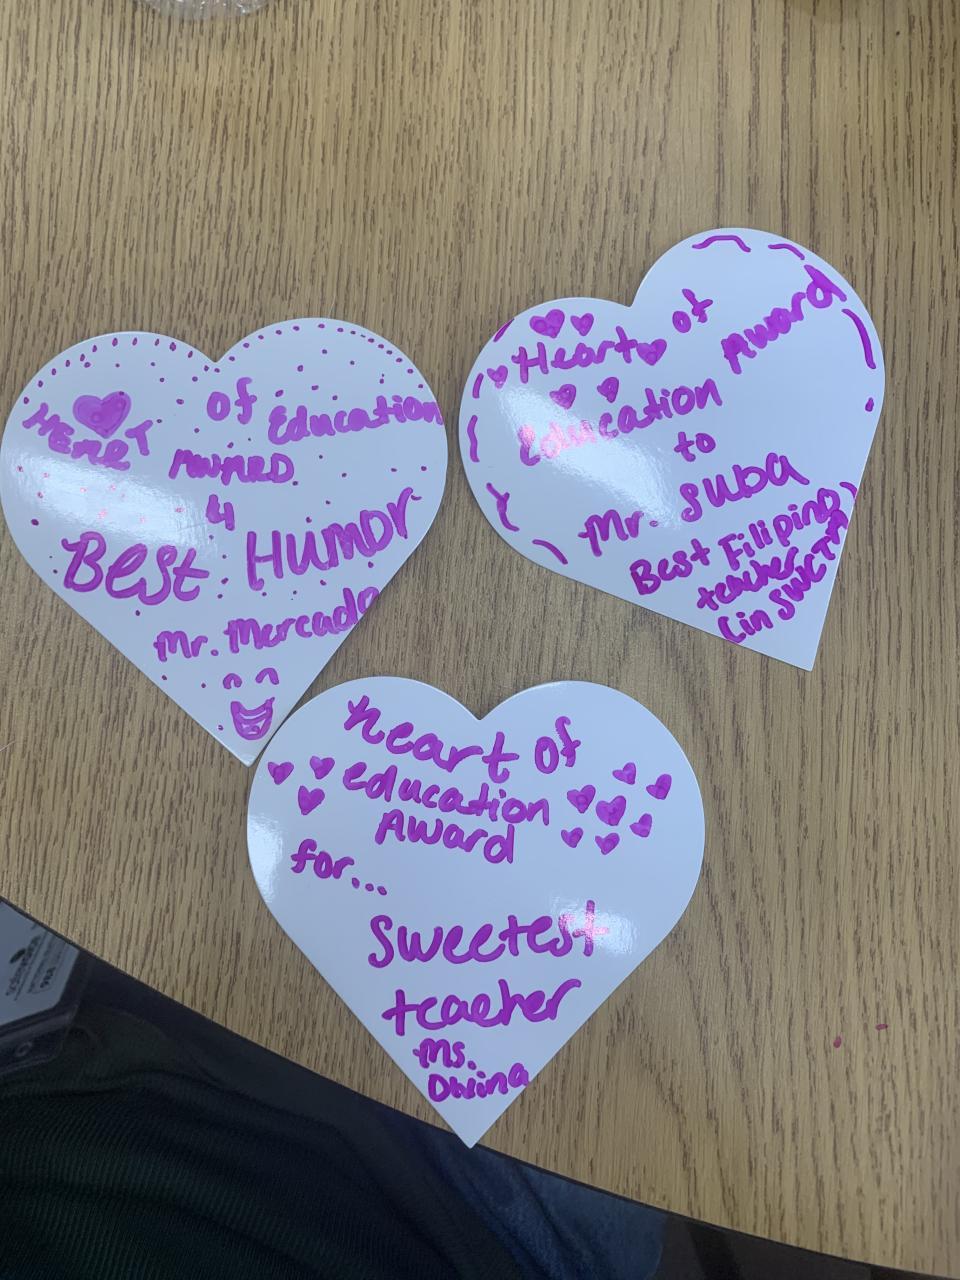 of Education
HEART
AWARD
4
Best Humor
Mr. Mercado
Heart of
Award
Education
to
Mr. Suba
Best Filipino
teacher
(in SWCTA)
heart of
education
Award
for...
Sweetest
teacher
Ms.